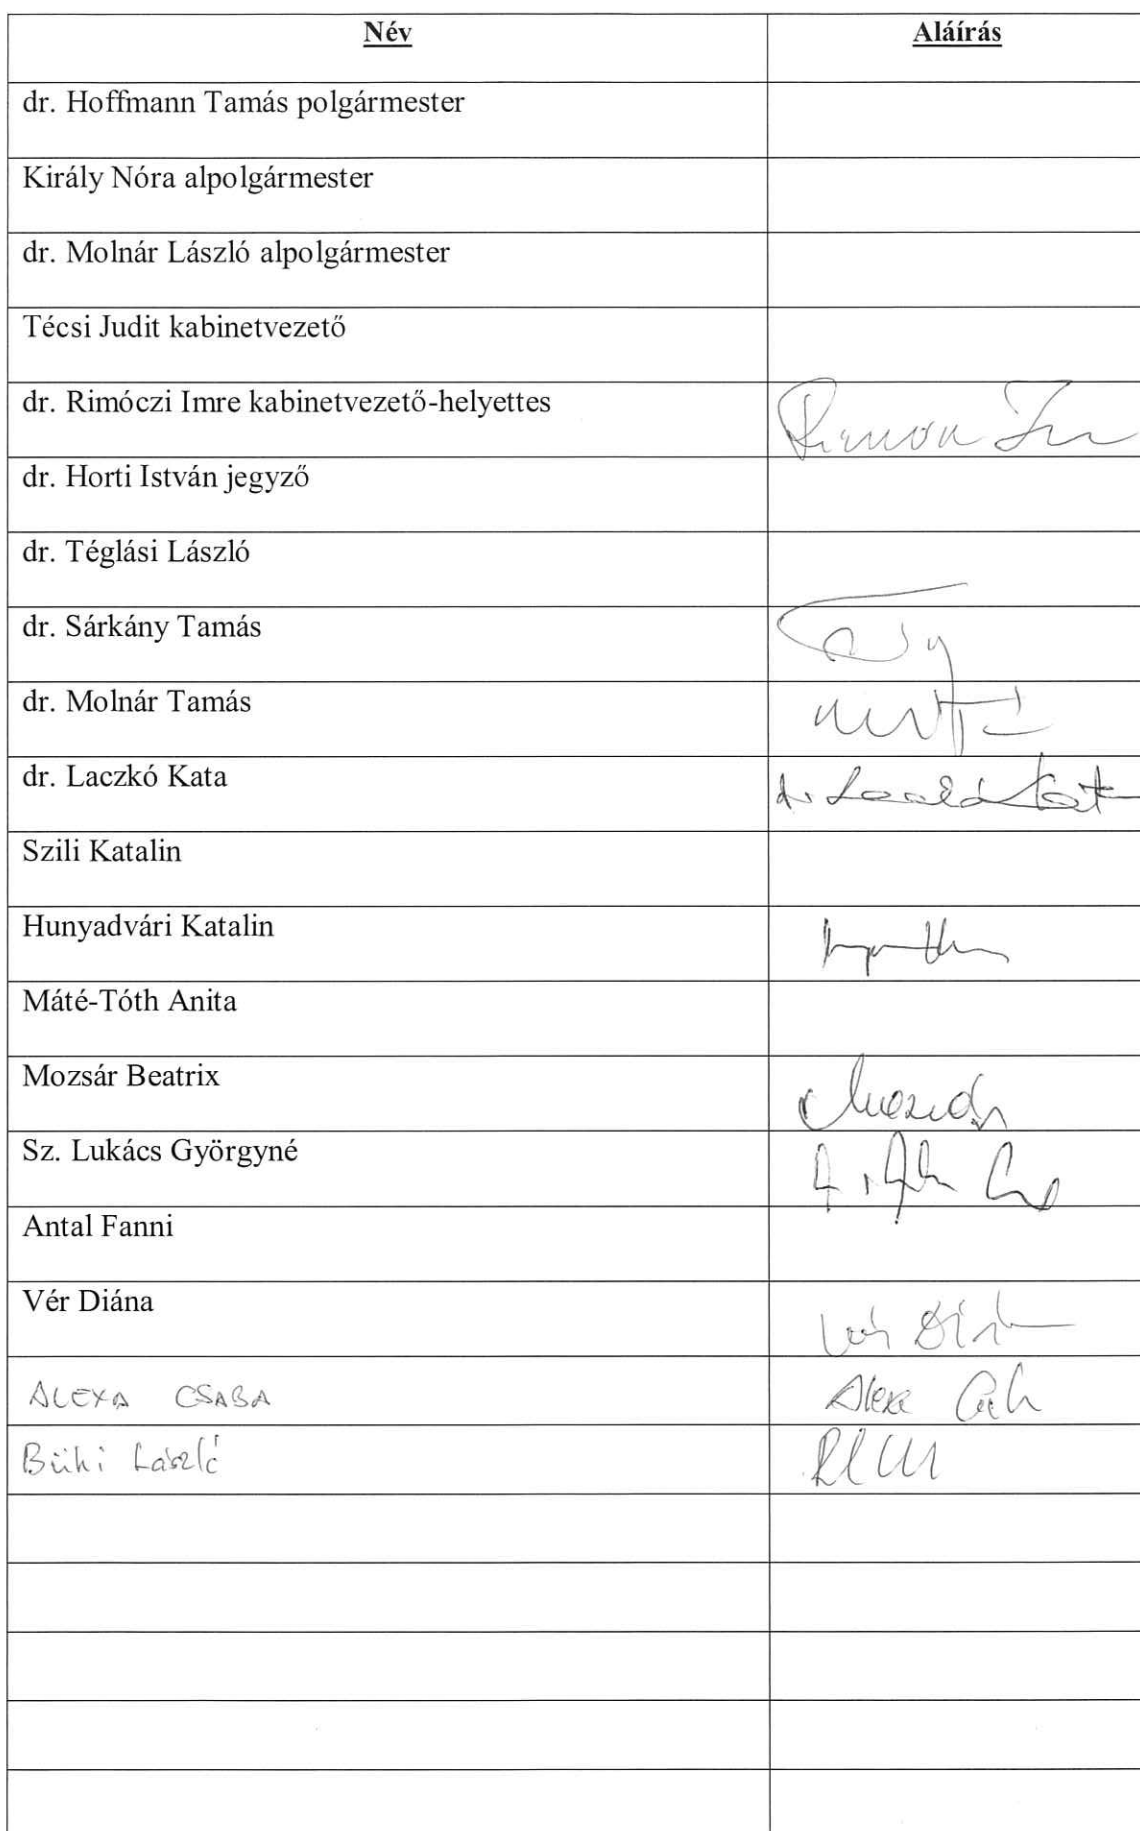 Név Aláírás
dr. Hoffmann Tamás polgármester
Király Nóra alpolgármester
dr. Molnár László alpolgármester
Técsi Judit kabinetvezető
dr. Rimóczi Imre kabinetvezető-helyettes
dr. Horti István jegyző
dr. Téglási László
dr. Sárkány Tamás
dr. Molnár Tamás
dr. Laczkó Kata
Szili Katalin
Hunyadvári Katalin
Máté-Tóth Anita
Mozsár Beatrix
Sz. Lukács Györgyné
Antal Fanni
Vér Diána
ALEXA CSABA
Büki László